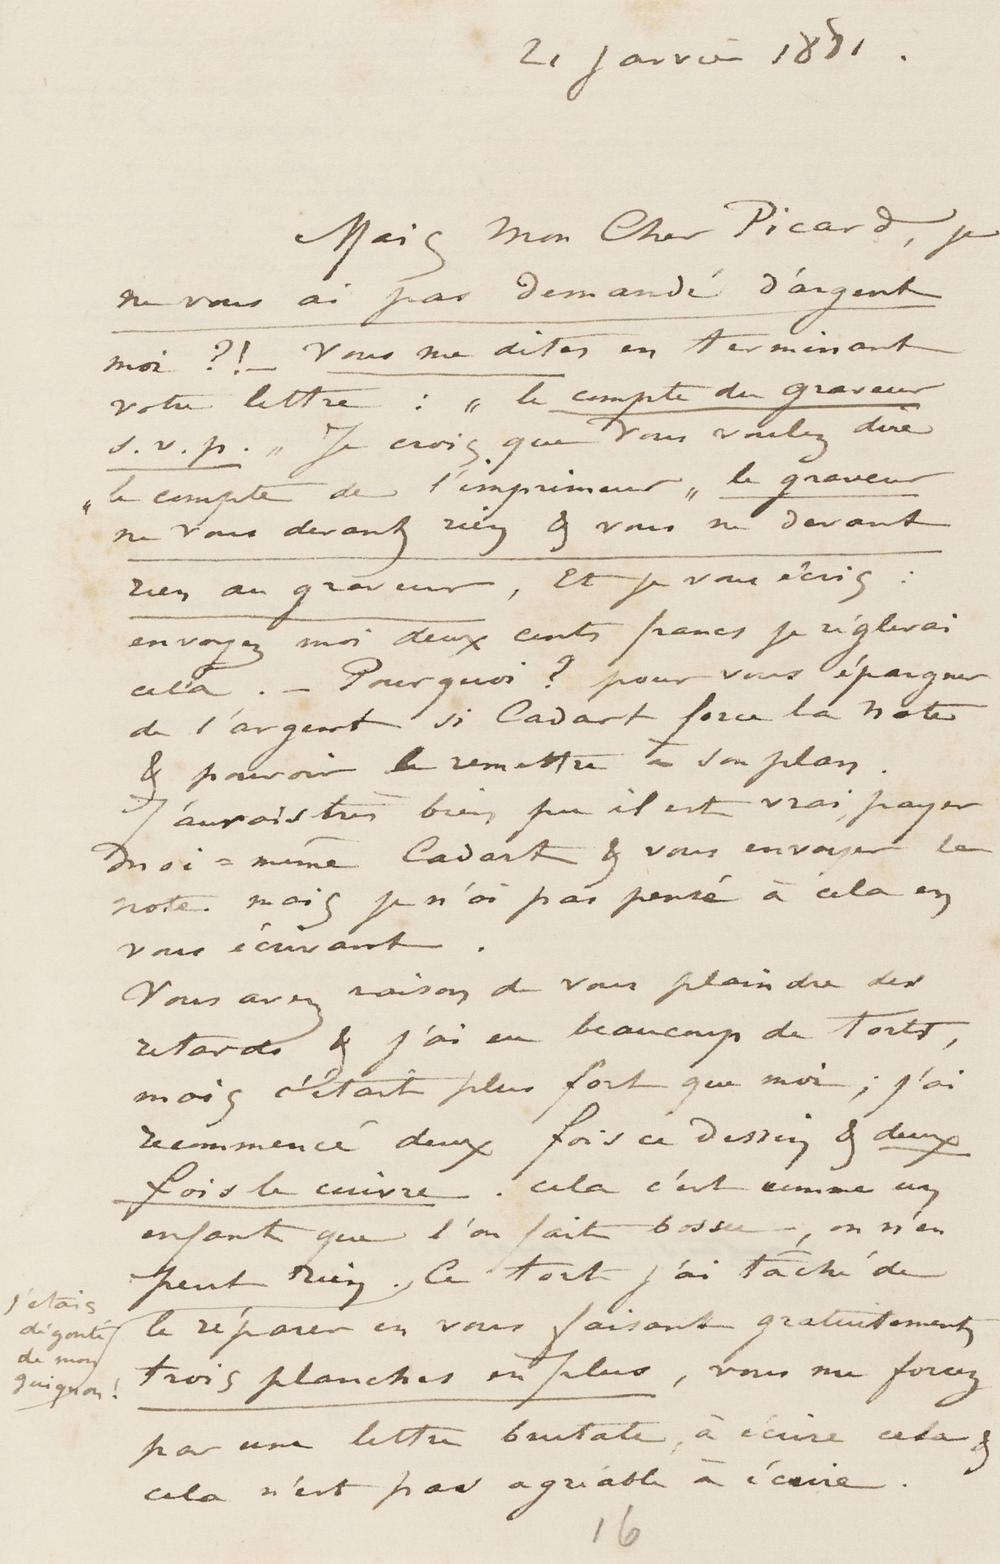 21 Janvier 1881.
Mais mon Cher Picard, je
ne vous ai pas demandé d'argent
moi ?! _ Vous me dites en terminant
votre lettre : „ le compte du graveur
s.v.p. „ Je crois que vous voulez dire
„ le compte de l'imprimeur „ le graveur
ne vous devant rien & vous ne devant
rien au graveur, Et je vous écris :
envoyez moi deux cents francs je réglerai
cela. _ Pourquoi ? pour vous épargner
de l'argent si Cadart force la note
& pouvoir le remettre à son plan.
J'aurais très bien pu il est vrai, payer
moi = même Cadart & vous envoyer la
note. mais je n'ai pas pensé à cela en
vous écrivant.
Vous avez raison de vous plaindre des
retards & j'ai eu beaucoup de torts,
mais c'était plus fort que moi ; j'ai
recommencé deux fois ce dessin & deux
fois le cuivre. cela c'est comme un
enfant que l'on fait bossu, on n'en
peut rien. Ce tort j'ai tâché de
le réparer en vous faisant gratuitement
trois planches en plus, vous me forcez
par une lettre brutale, à écrire cela &
cela n'est pas agréable à écrire.
j'étais
dégouté
de mon
guignon !
16